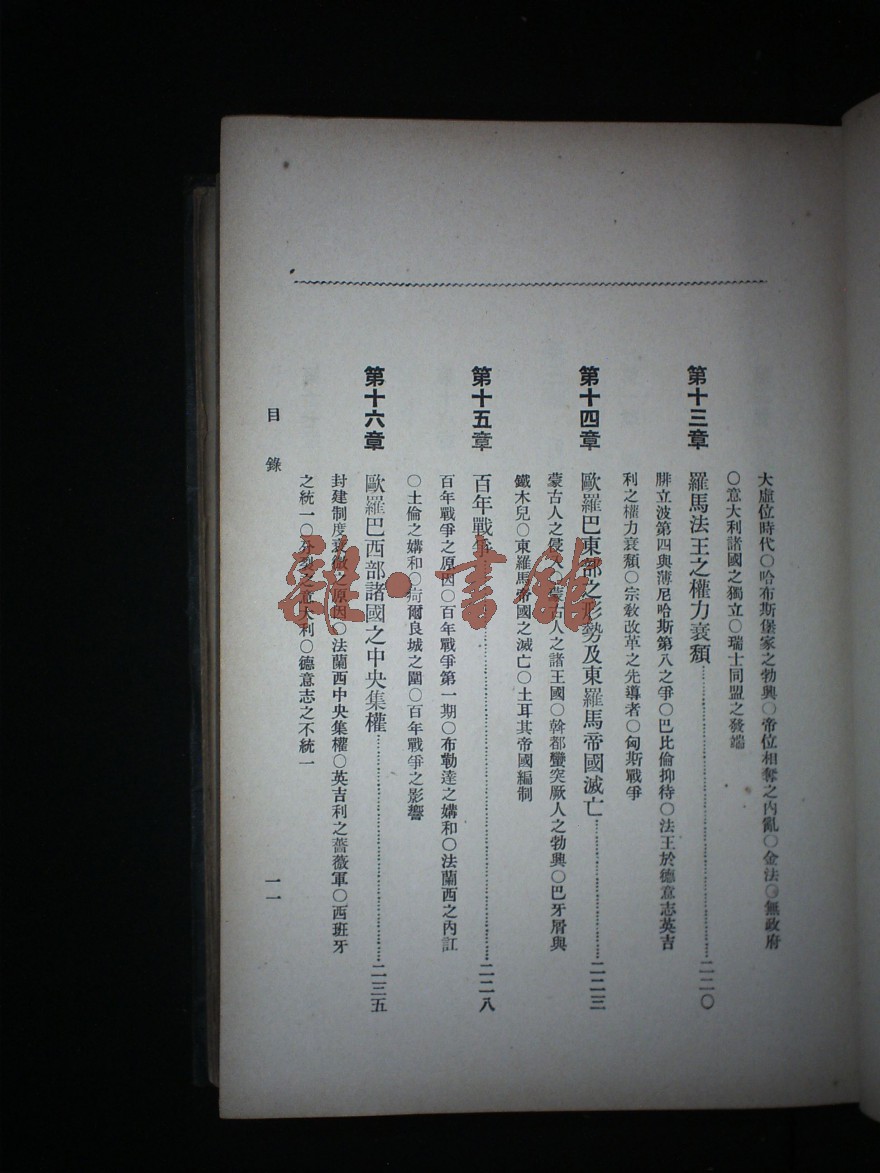 大虛位時代○哈布斯堡家之勃興○帝位相奪之內亂○金法○無政府
○意大利諸國之獨立○瑞士同盟之發端
第十三章 羅馬法王之權力衰頹……二二〇
腓立波第四與薄尼哈斯第八之爭○巴比倫抑待○法王於德意志英吉
利之權力衰頹○宗教改革之先導者○匈斯戰爭
第十四章 歐羅巴東部之形勢及東羅馬帝國滅亡……二二三
蒙古人之侵入○蒙古人之諸王國○斡都蠻突厥人之勃興○巴牙屑與
鐵木兒○東羅馬帝國之滅亡○土耳其帝國編制
第十五章 百年戰爭……二二八
百年戰爭之原因○百年戰爭第一期○布勒達之媾和○法蘭西之內訌
○土倫之媾和○疴爾良城之圍○百年戰爭之影響
第十六章 歐羅巴西部諸國之中央集權……二三五
封建制度衰微之原因○法蘭西中央集權○英吉利之薔薇軍○西班牙
之統一○分裂之意大利○德意志之不統一
目錄
一一
雜·書館